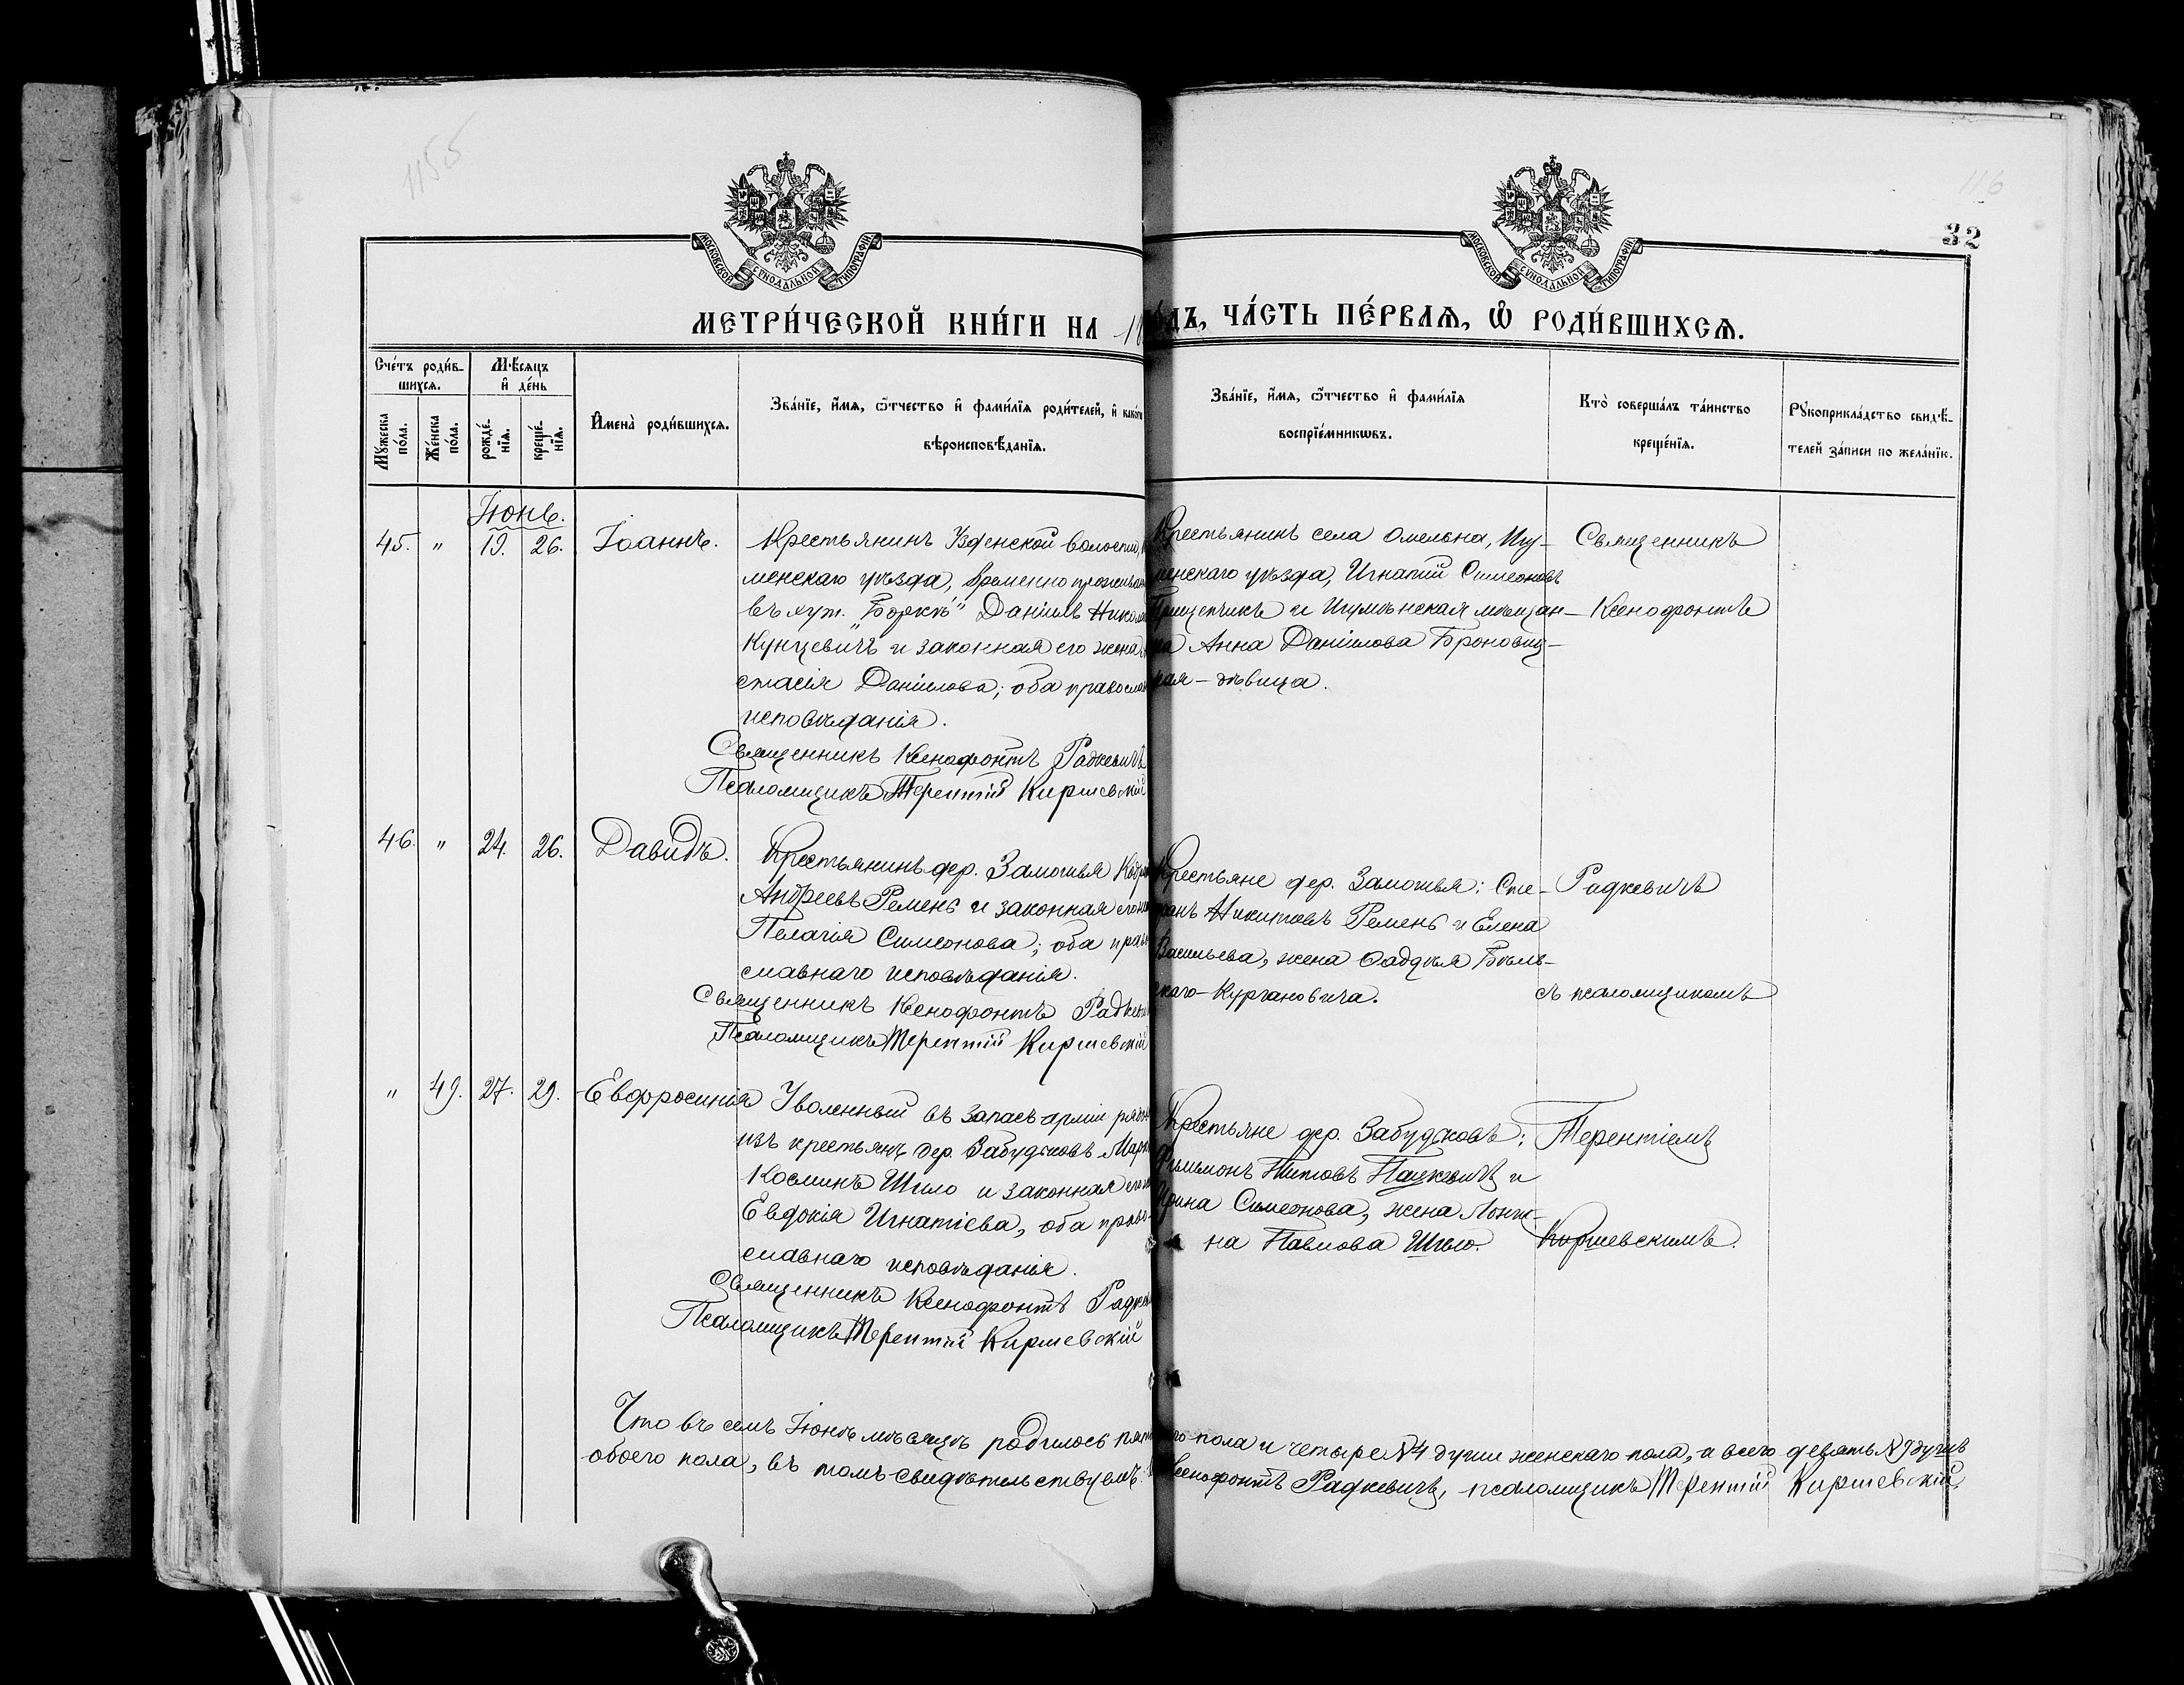 1155
116
32
МОСКОВСКОЙ СѴНОДАЛЬНОЙ ТИПОГРАФІИ
МОСКОВСКОЙ СѴНОДАЛЬНОЙ ТИПОГРАФІИ
МЕТРИ́ЧЕСКОЙ КНИ́ГИ НА 18
О́ДЪ, ЧА́СТЬ ПЕ́РВАѦ, Ѽ РОДИ́ВШИХСѦ.
Сче́тъ роди́в-
шихсѧ.
Мѣ́сѧцъ
и҆ де́нь
Мꙋ́жеска
по́ла.
Же́нска
по́ла.
рожде́-
нїѧ.
креще́-
нїѧ.
И҆мена̀ роди́вшихсѧ.
Зва́нїе, и҆́мѧ, ѻ҆́тчество и҆ фами́лїѧ роди́телей, и҆ како́гѡ
вѣроисповѣ́данїѧ.
Зва́нїе, и҆́мѧ, ѻ҆́тчество и҆ фами́лїѧ
воспрїе́мникѡвъ.
Кто̀ соверша́лъ та́инство
креще́нїѧ.
Рꙋкоприкла́дство свидѣ́-
телей за́писи по жела́нїю.
Іюнь.
45. " 19. 26. Іоаннъ.
Крестьянинъ Узденской волости,
менскаго уѣзда, временно прожива
въ хут. „Боркѣ" Даніилъ Никола
Кунцевичъ и законная его жена
стасія Даніилова; оба правосла
исповѣданія.
Священникъ Ксенофонтъ Радкевичъ
Псаломщикъ Терентій Киршевскій
Крестьянинъ села Омельна, Игу-
менскаго уѣзда, Игнатій Симеоновъ
Прищепчикъ и Игуменская мѣщан-
ка Анна Даніилова Броновиц-
кая – дѣвица.
Священникъ
Ксенофонтъ
46. " 24. 26. Давидъ.
Крестьянинъ дер. Замостья
Андреевъ Ремень и законная его же
Пелагія Симеонова; оба право
славнаго исповѣданія.
Священникъ Ксенофонтъ Радкеви
Псаломщикъ Терентій Киршевскій
Крестьяне дер. Замостья: Сте-
фанъ Никитовъ Ремень и Елена
Васильева, жена Ѳаддея Бѣль-
скаго-Кургановича.
Радкевичъ
съ псаломщикомъ
" 49. 27. 29. Евфросинія
Уволенный въ запасъ арміи рядо
изъ крестьянъ дер. Забудьковъ Марк
Косминъ Шило и законная его
Евдокія Игнатіева, оба право-
славнаго исповѣданія.
Священникъ Ксенофонтъ Радке
Псаломщикъ Терентій Киршевскій
Крестьяне дер. Забудьковъ:
Филимонъ Титовъ Пацкевичъ и
Ирина Симеонова, жена Лонги-
на Павлова Шило.
Терентіемъ
Киршевскимъ.
Что въ семъ Іюнѣ мѣсяцѣ родилось пят
го пола и четыре №4 души женскаго пола, а всего девять №9 душъ
обоего пола, въ томъ свидѣтельствуемъ:
Ксенофонтъ Радкевичъ, псаломщикъ Терентій Киршевскій